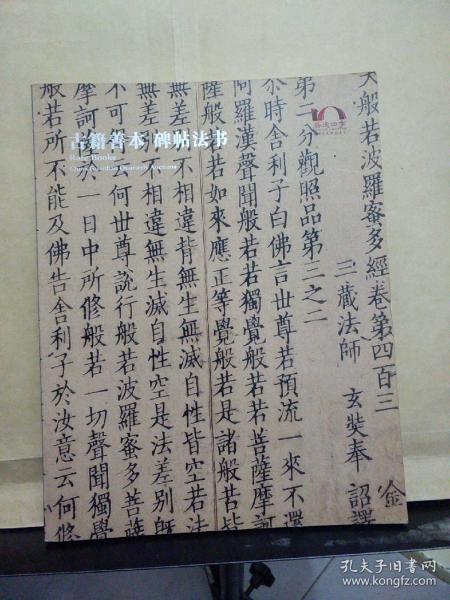 大般若波羅蜜多經卷第四百三
金
三藏法師 玄奘奉 詔譯
第二分觀照品第三之二
尒時舍利子白佛言世尊若預流一來不還
阿羅漢聲聞般若若獨覺般若若菩薩摩訶
薩般若若如來應正等覺般若是諸般若皆
無差別不相違背無生無滅自性皆空若法
無差別不相違無生滅自性空是法差別旣
不可何世尊說行般若波羅蜜多菩薩
摩訶於一日中所修般若一切聲聞獨覺
般若所不能及佛告舍利子於汝意云何修
古籍善本 碑帖法书
Rare Books
China Guardian Quarterly Auctions
嘉德四季
孔夫子旧书网
www.kongfz.com